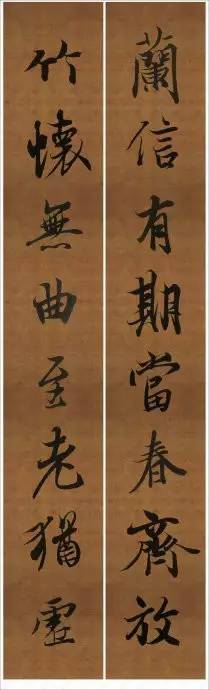 蘭信有期當春齊放
竹懷無曲至老猶虛